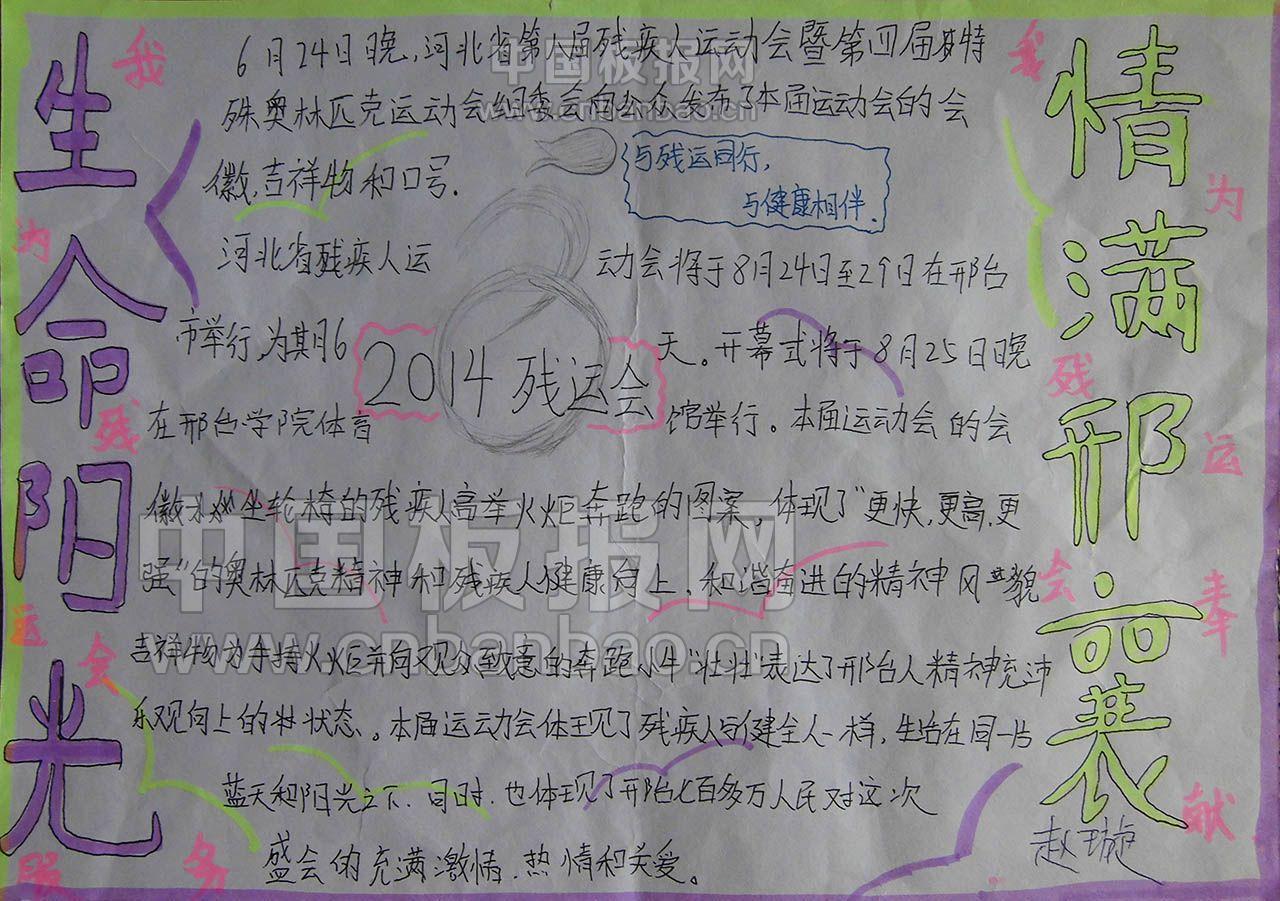 生命阳光
情满邢襄
6月24日晚,河北省第八届残疾人运动会暨第四届特
殊奥林匹克运动会组委会向公众发布了本届运动会的会
徽,吉祥物和口号.
与残运同行,
与健康相伴.
河北省残疾人运 动会将于8月24日至29日在邢台
市举行,为其月6 天。开幕式将于8月25日晚
2014残运会
在邢台学院体育 馆举行。本届运动会的会
徽 坐轮椅的残疾人高举火炬奔跑的图案,体现了“更快,更高,更
强”的奥林匹克精神和残疾人健康向上、和谐奋进的精神风貌
吉祥物为手持火炬并向观众致意的奔跑小牛“壮壮”表达了邢台人精神充沛
乐观向上的状态。本届运动会体现了残疾人与健全人一样,生活在同一片
蓝天和阳光之下.同时.也体现了邢台七百多万人民对这次
盛会的充满激情.热情和关爱。
我为残运会服务
我为残运会奉献
赵璇
中国板报网
www.cnbanbao.cn
中国板报网
www.cnbanbao.cn